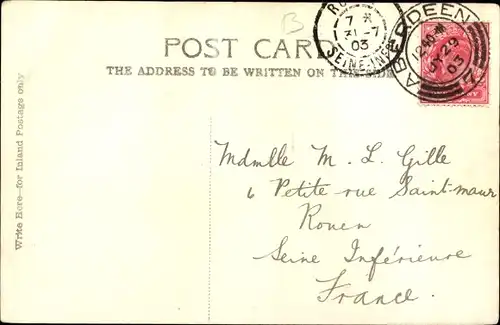 B
POST CARD
THE ADDRESS TO BE WRITTEN ON THIS SIDE
Write Here—for Inland Postage only
7
31-7
03
SEINE-INFRE
ABERDEEN
JY 29
03
Mdmlle M. L. Gille
6 Petite rue Saint-maur
Rouen
Seine Inférieure
France.